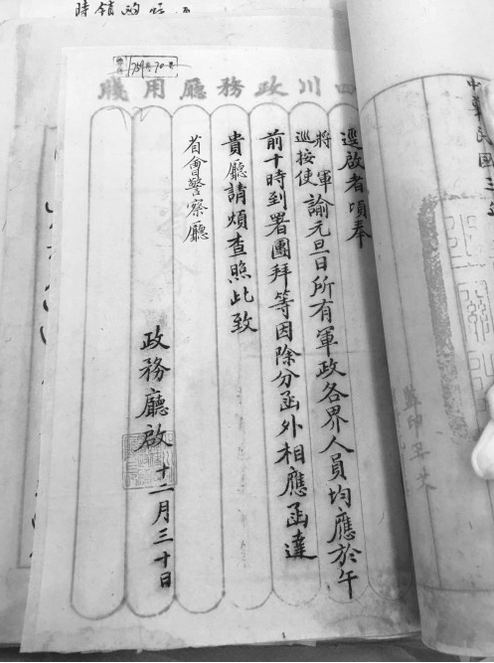 時領
四川政務廳用牋
逕啟者頃奉
將軍
巡按使諭元旦日所有軍政各界人員均應於午
前十時到署團拜等因除分函外相應函達
貴廳請煩查照此致
省會警察廳
政務廳啟
十二月三十日
中華民國三
監印